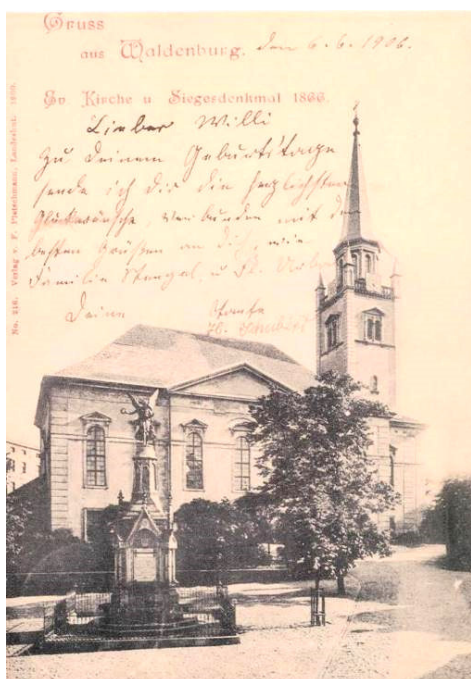 Gruss
aus Waldenburg. den 6.6.1906.
Ev. Kirche u Siegesdenkmal 1866.
Lieber Willi
Zu Deinem Geburtstage
sende ich Dir die herzlichsten
Glückwünsche, verbunden mit den
besten Grüßen an Dich, wie
Familie Stengel, u.
Deine Tante
No. 218. Verlag v. F. Pietschmann, Landeshut.